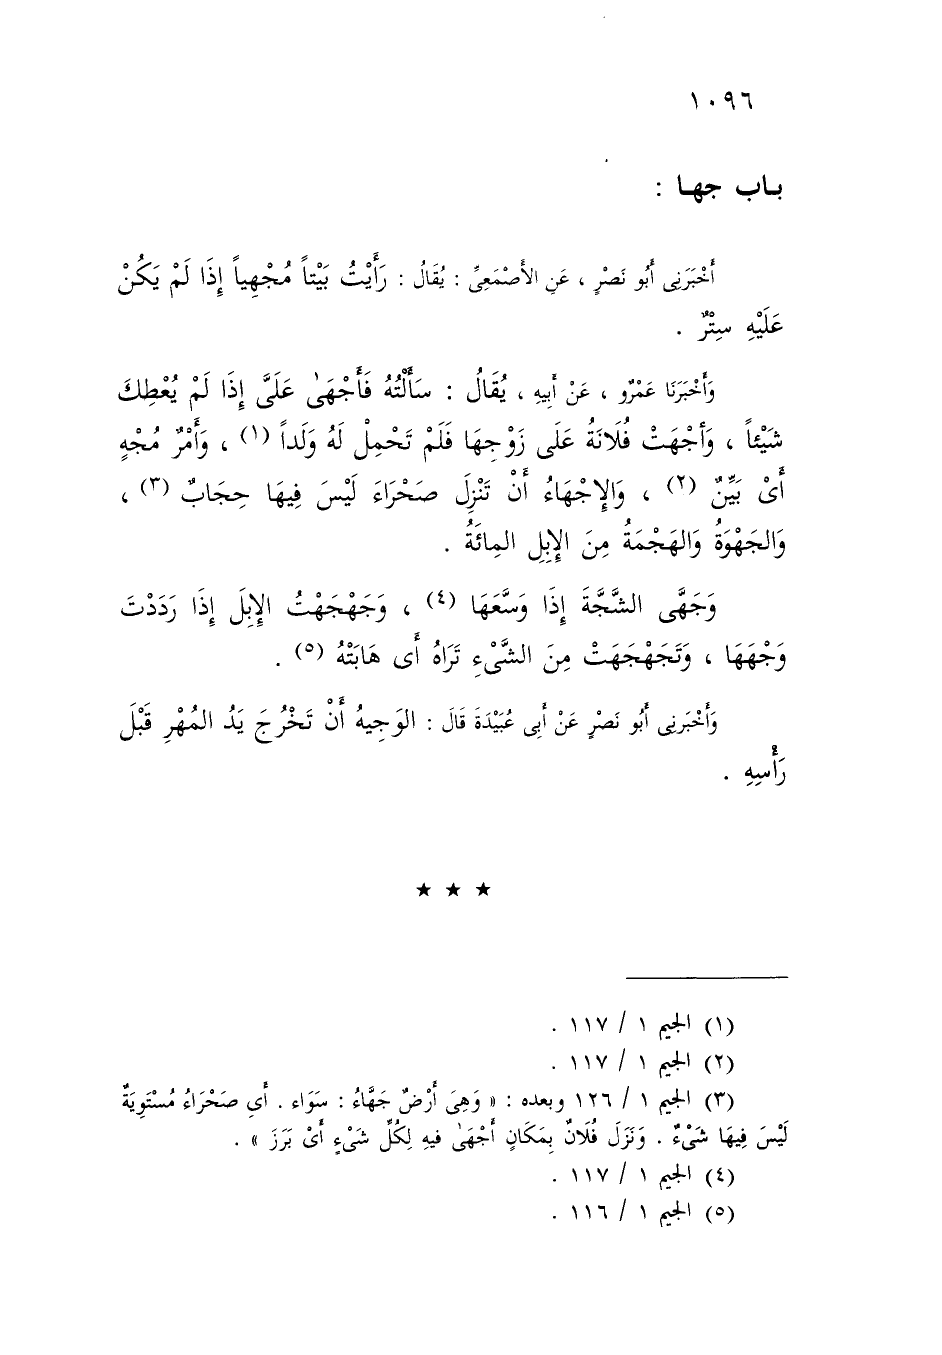 ١٠٩٦
بـاب جهـا :
أَخْبَرَنِى أَبُو نَصْرٍ ، عَنِ الأَصْمَعِىِّ : يُقَالُ : رَأَيْتُ بَيْتاً مُجْهِياً إِذَا لَمْ يَكُنْ
عَلَيْهِ سِتْرٌ .
وَأَخْبَرَنَا عَمْرٌو ، عَنْ أَبِيهِ ، يُقَالُ : سَأَلْتُهُ فَأَجْهَىٰ عَلَىَّ إِذَا لَمْ يُعْطِكَ
شَيْئاً ، وَأَجْهَتْ فُلَانَةُ عَلَى زَوْجِهَا فَلَمْ تَحْمِلْ لَهُ وَلَداً (١) ، وَأَمْرٌ مُجْهٍ
أَىْ بَيِّنٌ (٢) ، وَالإِجْهَاءُ أَنْ تَنْزِلَ صَحْرَاءَ لَيْسَ فِيهَا حِجَابٌ (٣) ،
وَالجَهْوَةُ وَالهَجْمَةُ مِنَ الإِبِلِ المِائَةُ .
وَجَهَّى الشَّجَّةَ إِذَا وَسَّعَهَا (٤) ، وَجَهْجَهْتُ الإِبِلَ إِذَا رَدَدْتَ
وَجْهَهَا ، وَتَجَهْجَهَتْ مِنَ الشَّىْءِ تَرَاهُ أَى هَابَتْهُ (٥) .
وَأَخْبَرنِى أَبُو نَصْرٍ عَنْ أَبِى عُبَيْدَةَ قَالَ : الوَجِيهُ أَنْ تَخْرُجَ يَدُ المُهْرِ قَبْلَ
رَأْسِهِ .
★ ★ ★
(١) الجيم ١ / ١١٧ .
(٢) الجيم ١ / ١١٧ .
(٣) الجيم ١ / ١٢٦ وبعده : « وَهِىَ أَرْضٌ جَهَّاءُ : سَوَاء . أَي صَحْرَاءُ مُسْتَوِيَةٌ
لَيْسَ فِيهَا شَىْءٌ . وَنَزَلَ فُلَانٌ بِمَكَانٍ أَجْهَىٰ فيهِ لِكُلِّ شَىْءٍ أَىْ بَرَزَ » .
(٤) الجيم ١ / ١١٧ .
(٥) الجيم ١ / ١١٦ .